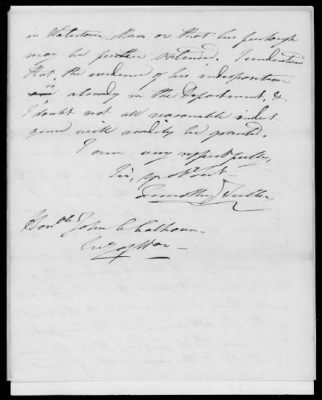 in Watertown, Mass or that his furlough
may be further extended. I understand
that, the evidence of his indisposition
is already in the Department, &
I doubt not all reasonable indul-
gence will readily be granted.
I am very respectfully,
Sir, yr Obt Sert
Timothy Fuller
Honble John C Calhoun
Secy of War